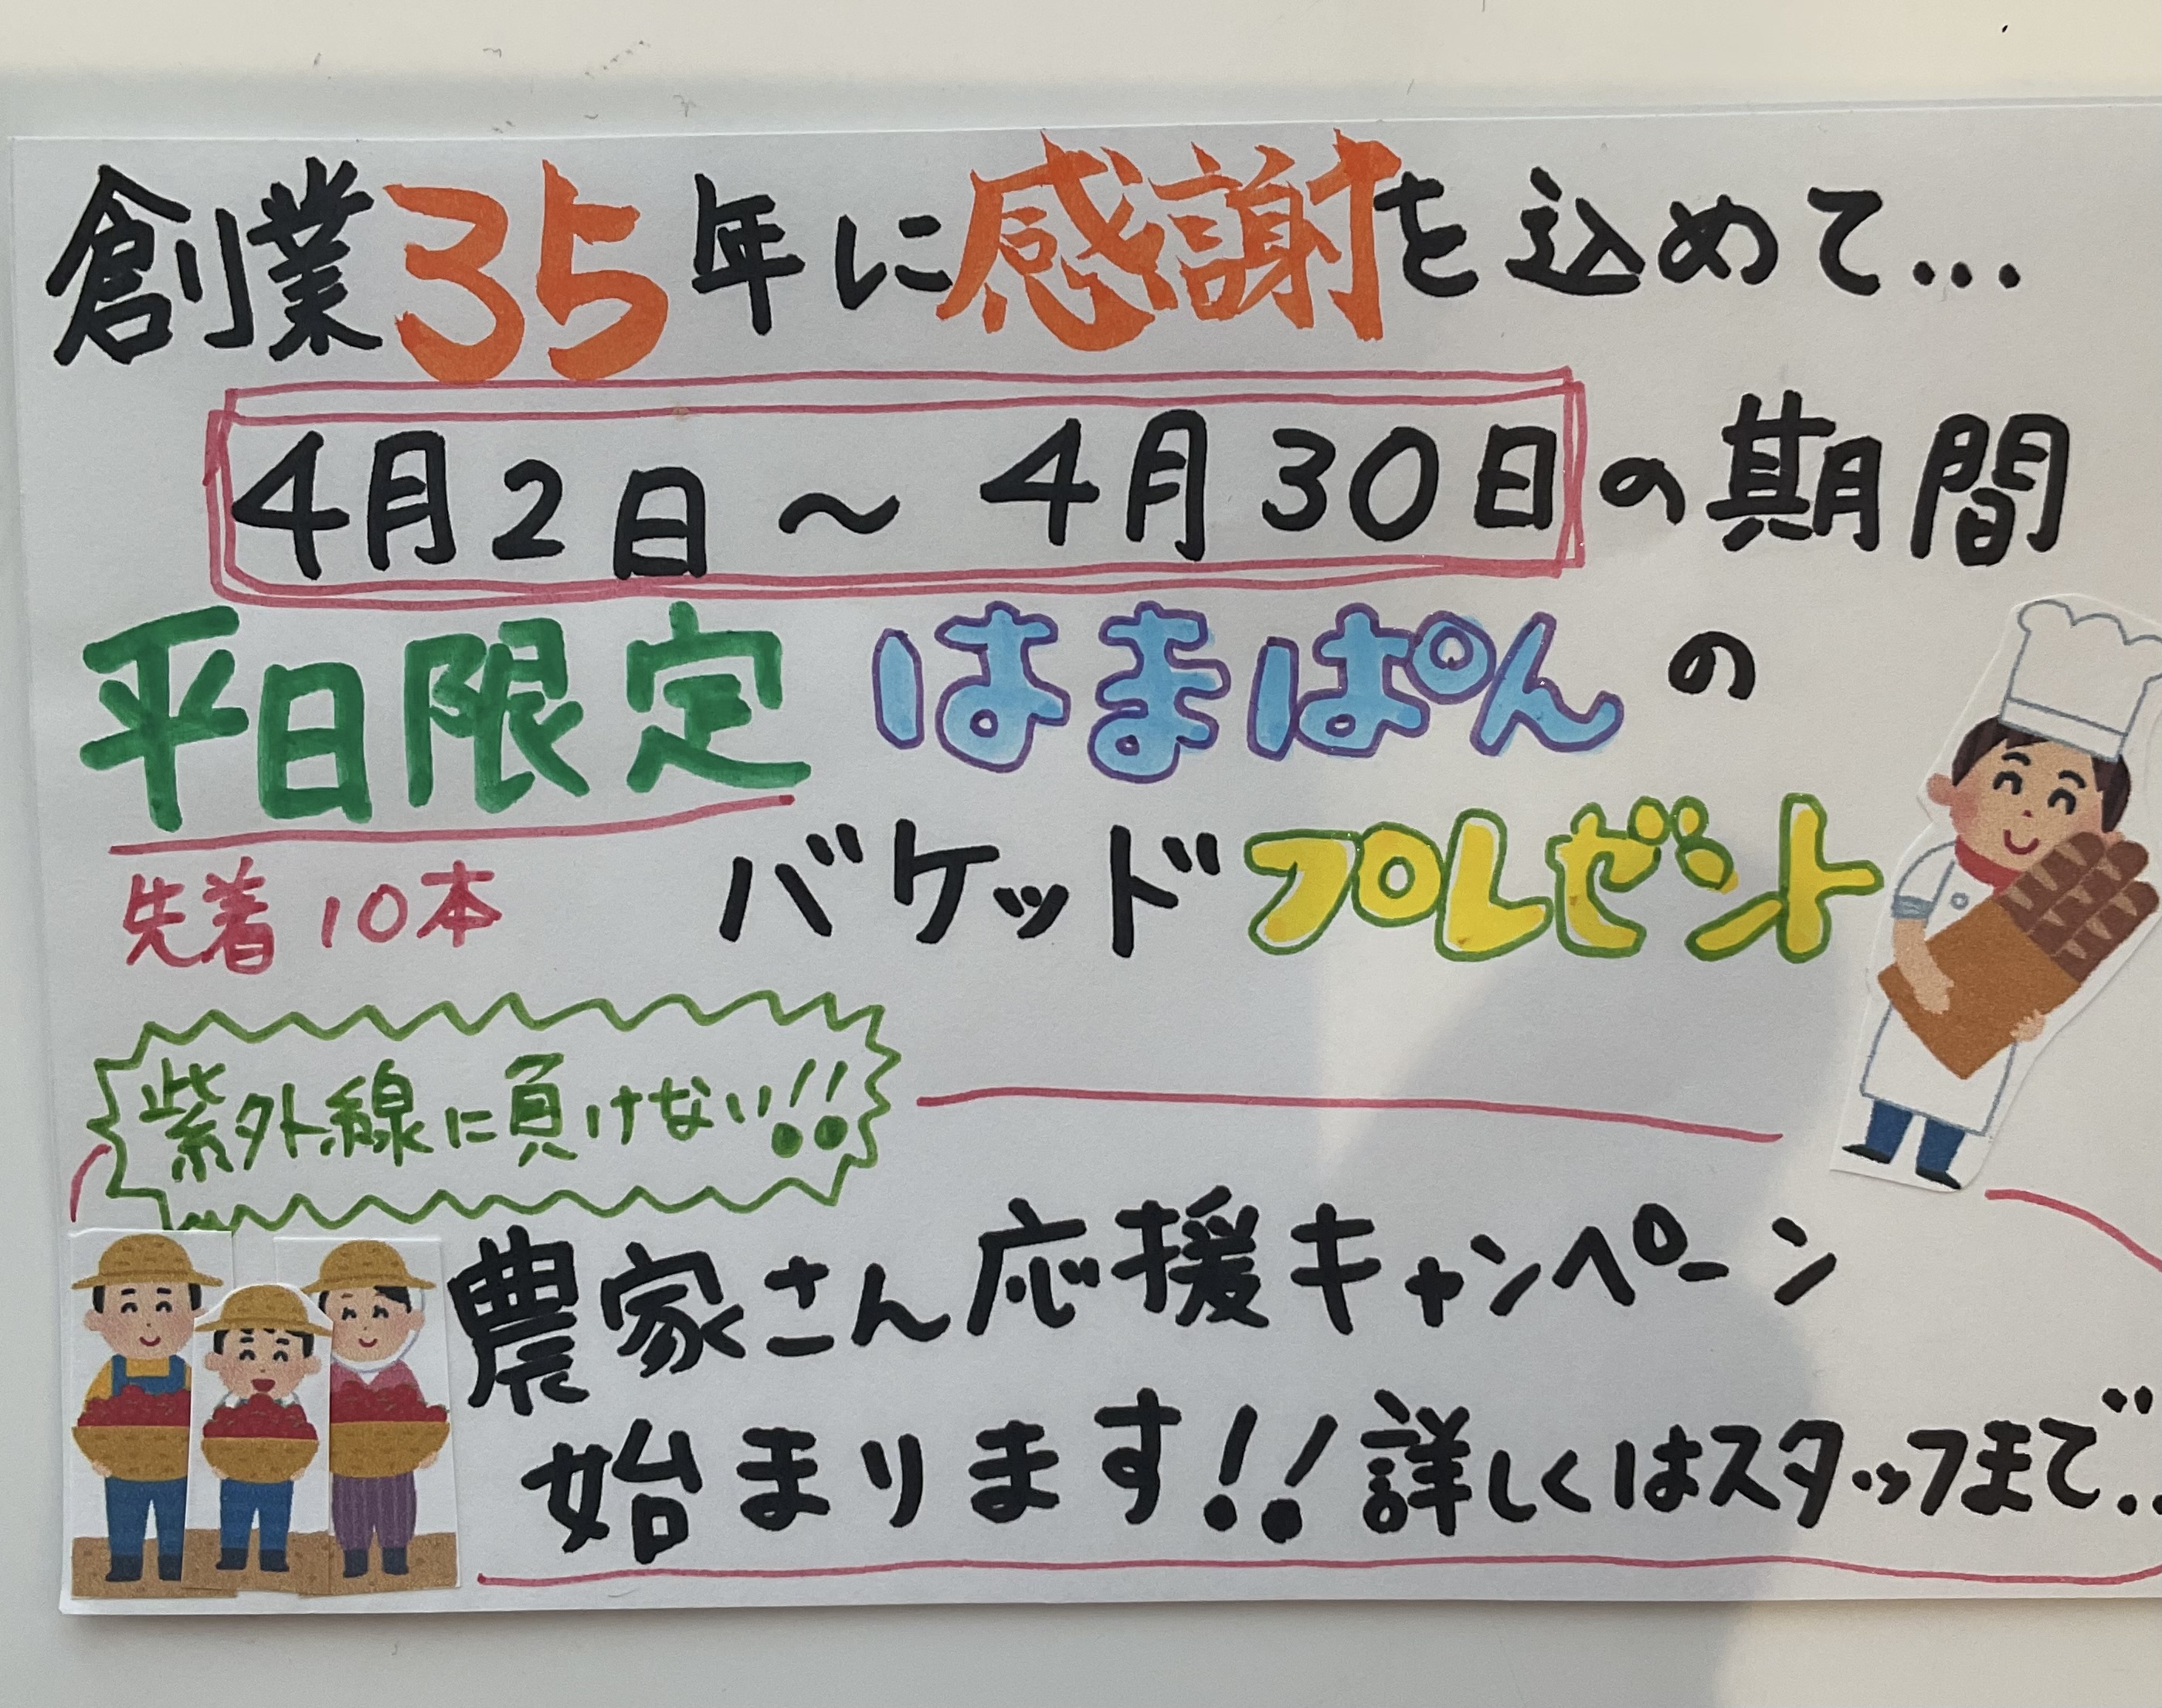 創業35年に感謝を込めて...
4月2日～4月30日の期間
平日限定 はまぱんの
先着10本 バケッドプレゼント
紫外線に負けない!!
農家さん応援キャンペーン
始まります!!詳しくはスタッフまで..